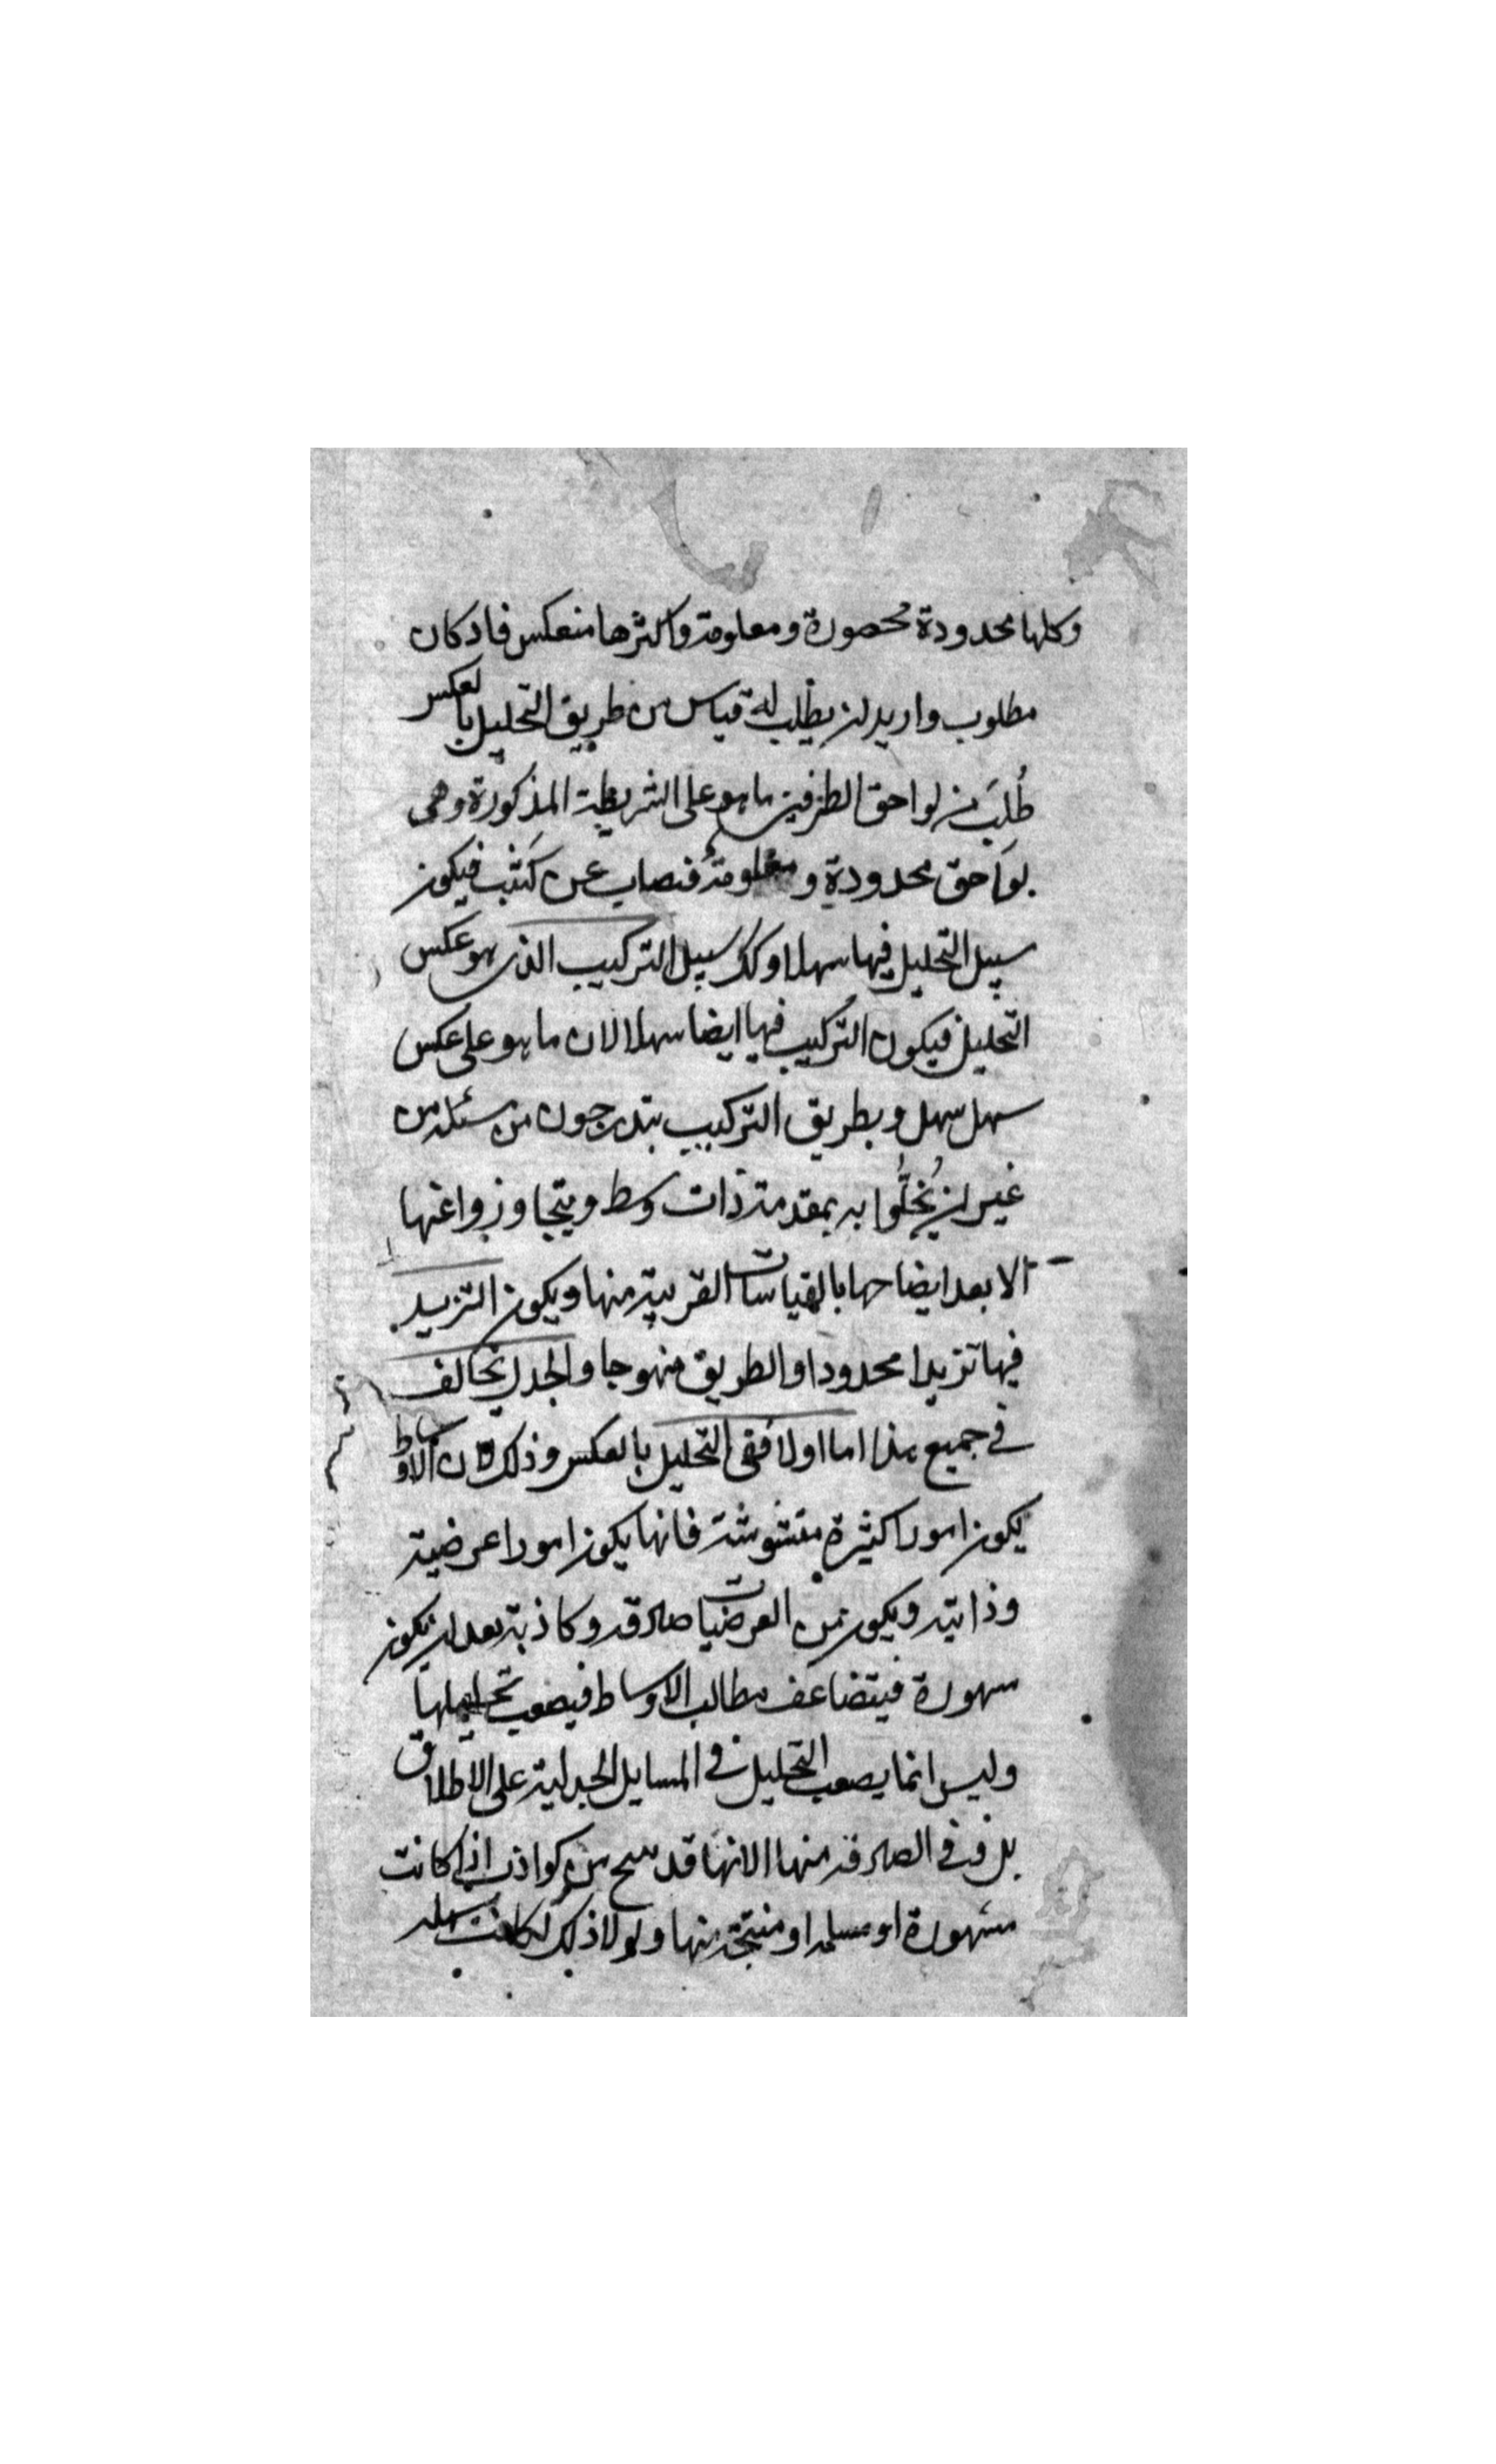 وكلها محدودة محصورة ومعلومة واكثرها منعكس فاذ كان
مطلوب واريد ان يطلب له قياس من طريق التحليل بالعكس
طُلِبَ من لواحق الطرفين ما هو على الشريطة المذكورة وهى
لواحق محدودة ومعلومة فتصاب عن كثب فيكون
سبيل التحليل فيها سهلا وكك سبيل التركيب الذى هو عكس
التحليل فيكون التركيب فيها ايضا سهلا لان ما هو على عكس
سهل سهل وبطريق التركيب يتدرجون من مسئلة من
غير ان يُخِلُّوا به بمقدمة ذات وسط ويتجاوزوا عنها
الا بعد ايضاحها بالقياسات القريبة منها ويكون التزيد
فيها تزيدا محدودا والطريق منهوجا والجدل يخالف
فى جميع هذا اما اولا ففى التحليل بالعكس وذلك لان الاوساط
يكون امورا كثيرة متشوشة فانها يكون امورا عرضية
وذاتية ويكون من العرضيات صادقة وكاذبة بعد ان يكون
مشهورة فيتضاعف مطالب الاوساط فيصعب تحليلها
وليس انما يصعب التحليل فى المسايل الجدلية على الاطلاق
بل وفى الصادقة منها لانها قد ينتج من كواذب اذا كانت
مشهورة او مسلمة او منتجة منها ولولا ذلك لكانت سهلة